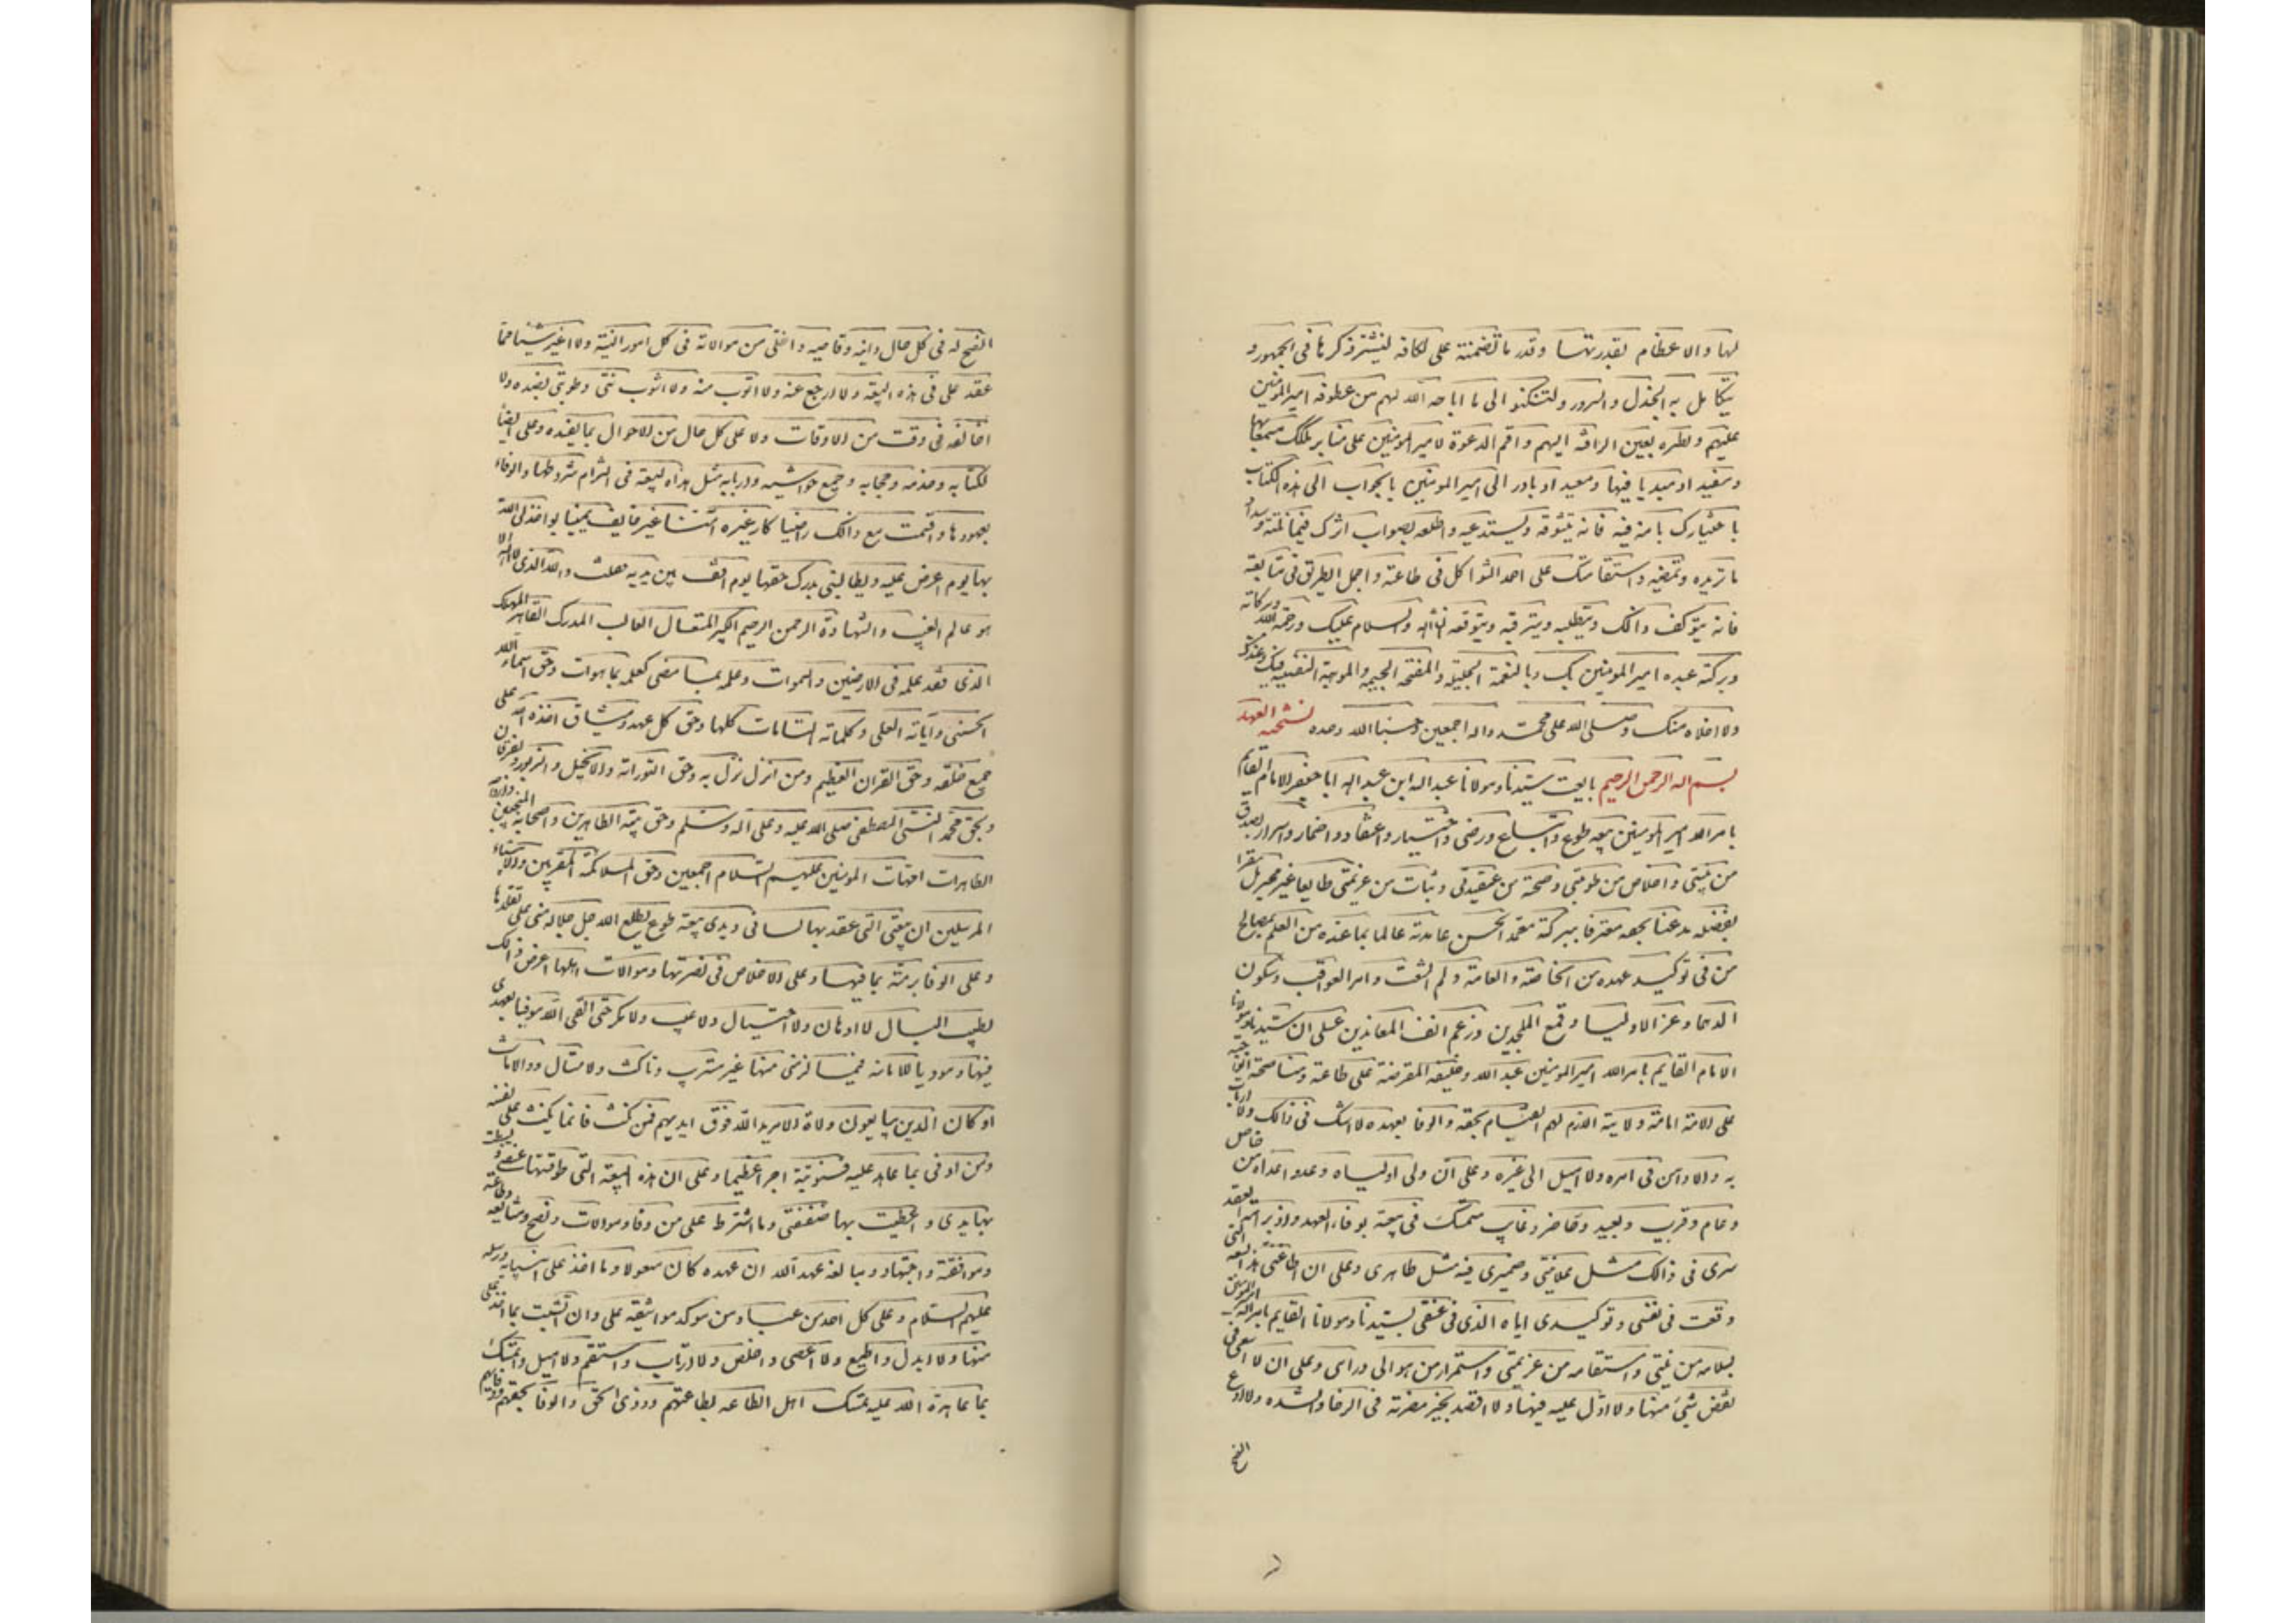 لها والاعظام لقدرتها وقدر ما تضمنته على لكافه لينشر ذكرها فى الجمهور و
يتكامل به الجذل والسرور ولتسكنوا الى ما اباحه الله لهم من عطوفه اميرالمومنين
عليهم ونظره بعين الرافه اليهم واقم الدعوة لاميرالمومنين على منابر تلك
ومعيد اد بادر الى اميرالمومنين بالجواب الى هذه الكتاب
فيه فانه يتشوقه ويستدعيه واطلعه بصواب اثرك فيما
ما تريده وتمضيه واستقامتك على احمد الشواكل فى طاعته واجمل الطريق فى متابعته
فانه يتوكف ذالك ويتطلبه ويترقبه ويتوقعه انشاالله والسلام عليك ورحمة الله وبركاته
وبركته عبده اميرالمومنين بك وبالنعمة الجليله والموهبة النفيسة فيك وعندك
ولا اخلاه منك وصلى الله على محمد واله اجمعين وحسبنا الله وحده نسخه العهد
بسم اله الرحمن الرحيم بايعت سيدنا ومولانا عبداله ابن عبداله ابا جعفر الامام القايم
بامرالله اميرالمومنين بيعه طوع واتباع ورضى واختيار واعتقاد واضمار واسرار بصدق
من نيتى واخلاص من طويتى وصحة من عقيدتى وثبات من عزيمتى طايعا غير مجبر بل مقرا
بفضله مذعنا بحقه معترفا ببركته عايدته عالما بما عنده من العلم بمصالح
من فى توكيد عهده من الخاصة والعامة ولم الشعث وامر العواقب وسكون
الدهما وعز الاوليا وقمع الملحدين ورغم انف المعاندين على ان سيدنا ومولانا
الامام القايم بامرالله اميرالمومنين عبدالله وخليفه المفترضة على طاعته ومناصحته
على الامة امامته وولايته اللازم لهم القيام بحقه والوفا بعهده لا اشك فى ذالك ولا ارتاب
به ولا اداهن فى امره ولا اميل الى غيره وعلى ان ولى اولياه وعدو اعداه من خاص
وعام وقريب وبعيد وحاضر وغايب متمسك فى بيعته بوفاء العهد
سرى فى ذالك مثل علانيتى وضميرى فيه مثل ظاهرى وعلى ان
وقعت فى نفسى وتوكيدى اياه الذى فى عنقى لسيدنا ومولانا القايم بامرالله
بسلامه من نيتى واستقامه من عزيمتى واستمرار من هواى وراى وعلى ان لا اسعى فى
نقض شئ منها ولا اؤل عليه فيها ولا اقصد مضرته فى الرخا والشده ولا ادع
النصح له فى كل حال دانيه وقاصيه ولا اخلى من موالاته فى كل امور النية ولا اغير شيئا مما
عقد على فى هذه البيعة ولا ارجع عنه ولا اتوب منه ولا اشوب نيتى وطويتى بضده ولا
اخالفه فى وقت من الاوقات ولا على كل حال من الاحوال بما يفسده وعلى ايضا
لكتابه وخدمه وحجابه وجميع حواشيه مثل هذه البيعة فى التزام شروطها والوفاء
بعهودها واقسمت مع ذالك راضيا يمينا يواخذنى الله
بها يوم اعرض عليه ويطالبنى بدرك حقها يوم اقف بين يديه فقلت والله الذى لا اله الا
هو عالم الغيب والشهادة الرحمن الرحيم الكبير المتعال الغالب المدرك القاهر المهلك
الذى نفذ علمه فى الارضين والسموات وعلمه بما مضى كعلمه بما هو ات وحق اسماء الله
الحسنى واياته العلى وكلماته التامات كلها وحق كل عهد وميثاق اخذه الله على
جميع خلقه وحق القران العظيم ومن انزل نزل به وحق التوراته والانجيل والزبور والفرقان
وبحق محمد النبى المصطفى صلى الله عليه وعلى اله وسلم وحق بيته الطاهرين واصحابه المنتجبين
الطاهرات امهات المومنين عليهم السلام اجمعين وحق الملائكة المقربين والانبياء
المرسلين ان بيعتى التى عقد بها لسانى ويدى بيعة طوع يطلع الله جل جلاله منى على تقلدها
وعلى الوفا برمته بما فيها وعلى الاخلاص فى نصرتها وموالات اهلها اعرض ذالك
بطيب البال لا ادهان ولا احتيال ولا عيب ولا مكر حتى القى الله موفيا بعهدى
فيها وموديا للامانه فيما لزمنى منها غير مستريب وناكث ولا متال
او كان الذين يبايعون ولاة الامر يد الله فوق ايديهم فمن نكث فانما ينكث على نفسه
ومن اوفى بما عاهد عليه فسنوتية اجرا عظيما وعلى ان هذه البيعة التى طوقتها عنقى وبسطت
بها يدى واعطيت بها صفقتى وما اشترط على من وفا وموالات ونصح ومشايعه وطاعته
وموافقة واجتهاد ومبالغه عهد الله ان عهده كان مسعولا وما اخذ على انبيايه ورسله
عليهم السلام وعلى كل احد من عباده من موكد مواثيقه على وان اتشبت بما اخذ على
منها ولا ابدل واطيع ولا اعصى واخلص ولا ارتاب واستقم ولا اميل واتمسك
بما عاهدة الله عليه تمسك اهل الطاعه بطاعتهم وذوى الحق والوفا بحقهم